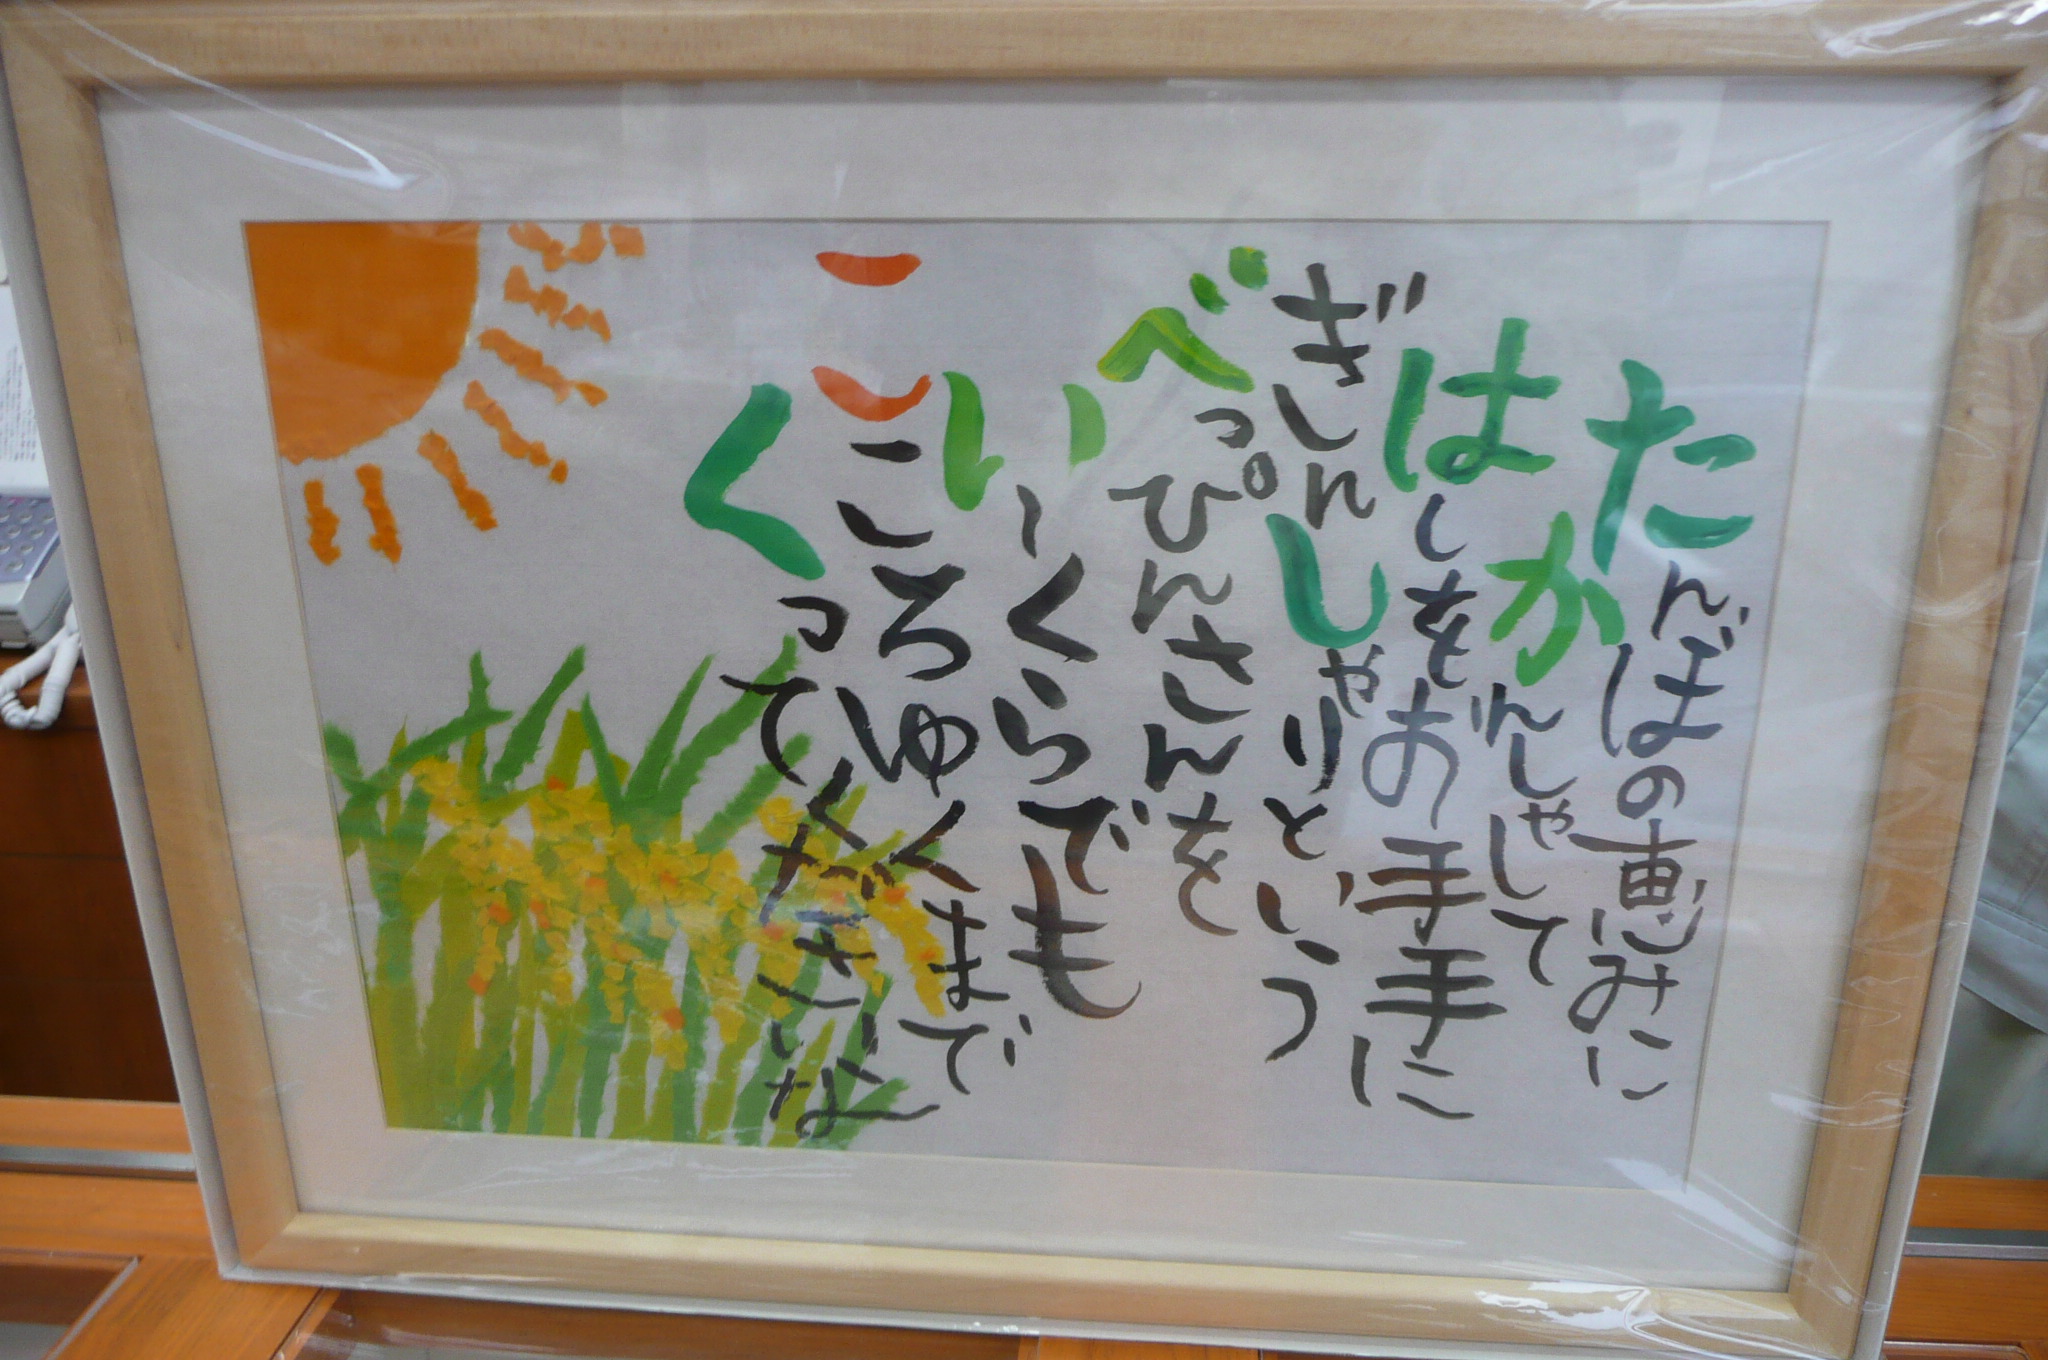 たんぼの恵みに
かんしゃして
はしをお手手に
ぎんしゃりという
べっぴんさんを
いーくらでも
こころゆくまで
くってくださいな